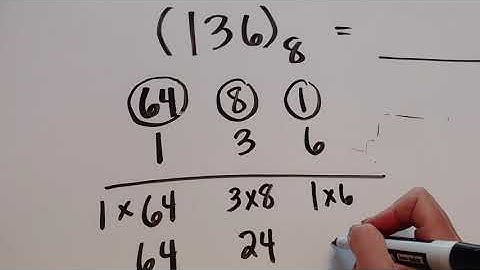 (136)8 =
64 8 1
1 3 6
1×64 3×8 1×6
64 24